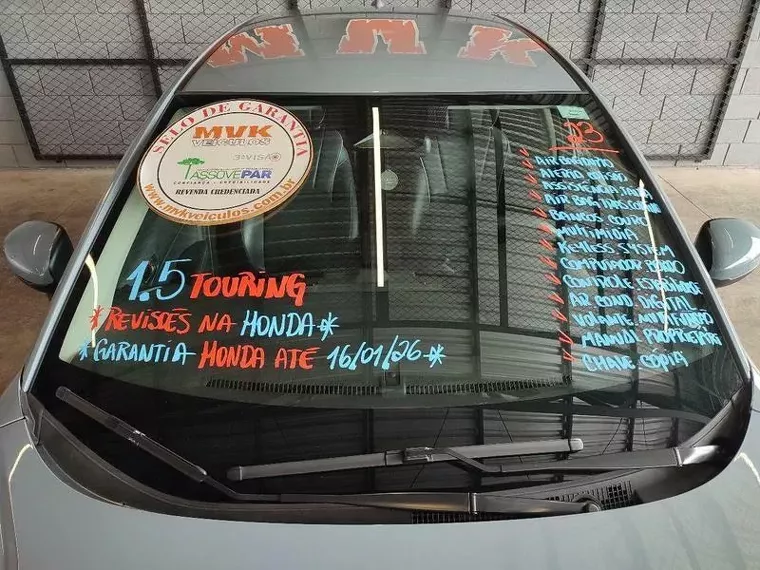 MVK
SELO DE GARANTIA
MVK
VEÍCULOS
ASSOVEPAR
REVENDA CREDENCIADA
www.mvkveiculos.com.br
23
AIR BAG
ASSISTENCIA
AIR BAG
BANCOS COURO
MULTIMIDIA
KEYLESS SYSTEM
COMPUTADOR BORDO
CONTROLE ESTABILIDADE
AR COND DIGITAL
VOLANTE
MANUAL PROPRIETARIO
CHAVE COPIA
1.5 TOURING
*REVISÕES NA HONDA*
*GARANTIA HONDA ATÉ 16/01/26*